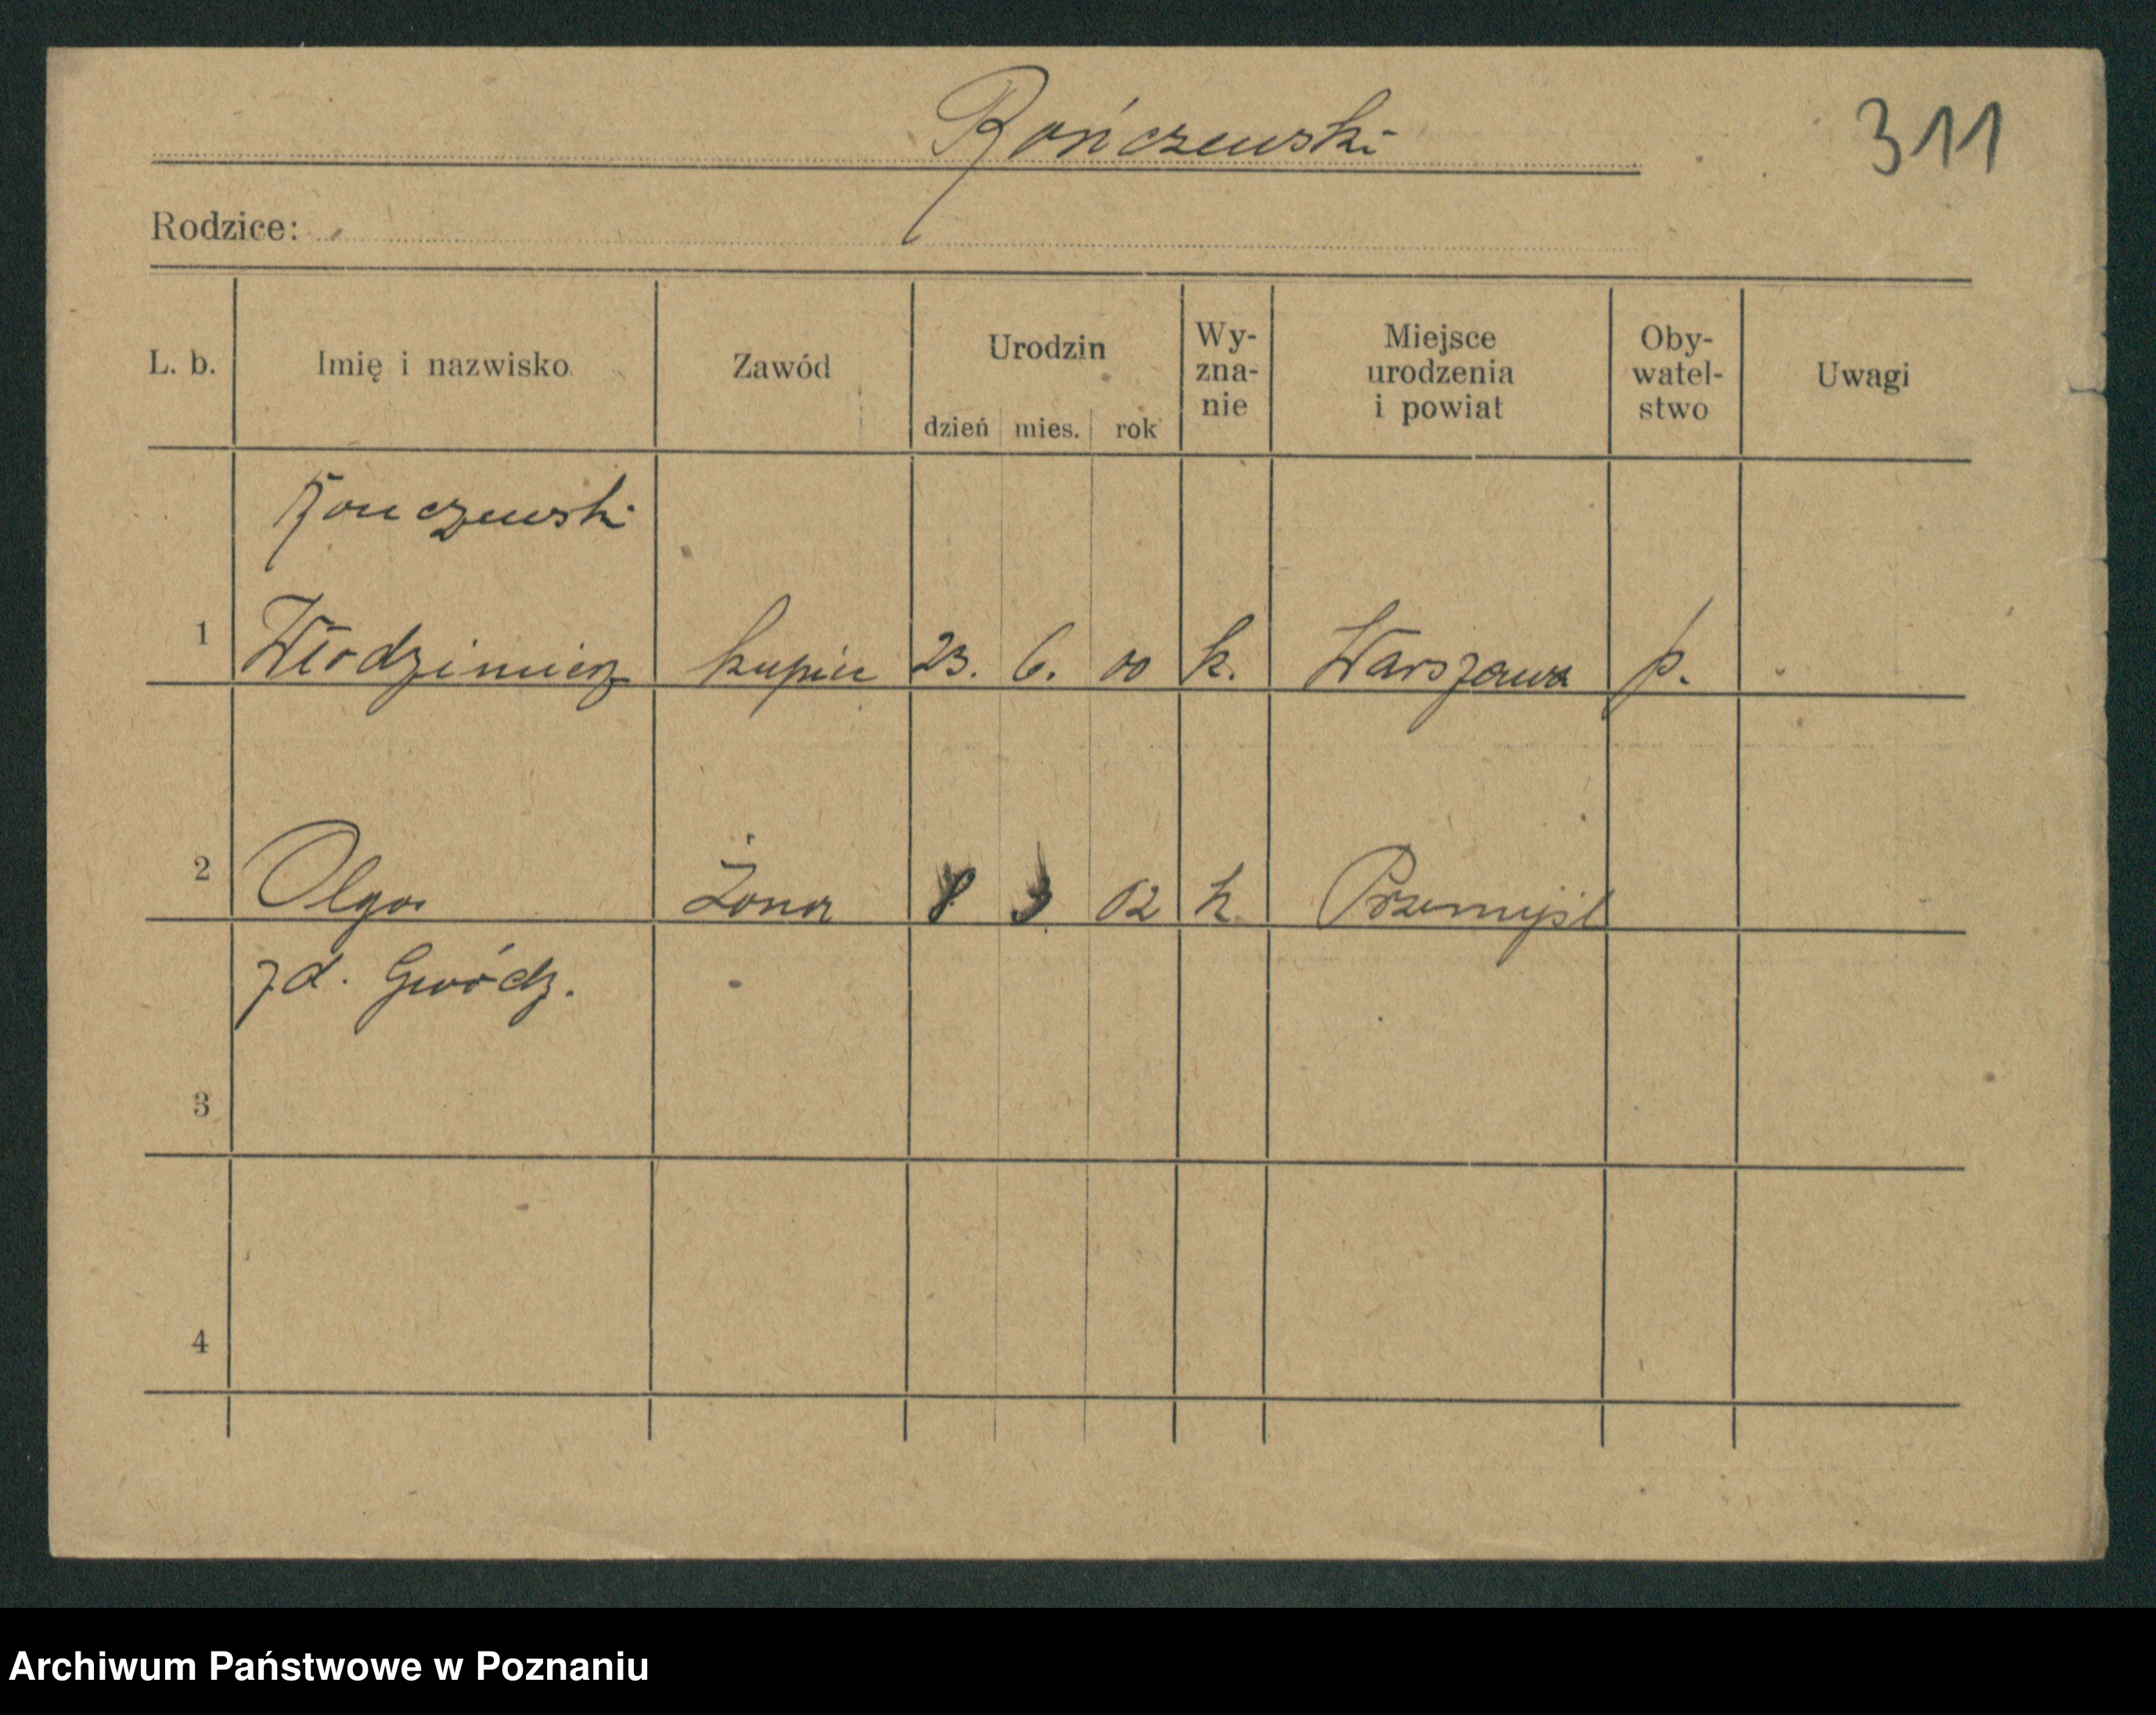 Rończewski
311
Rodzice:
L. b.
Imię i nazwisko
Zawód
Urodzin
dzień mies. rok
Wy-
zna-
nie
Miejsce
urodzenia
i powiat
Oby-
watel-
stwo
Uwagi
Ronczewski
1 Włodzimierz kupiec 23. 6. 00 k. Warszawa p.
2 Olga żona 8 3 02 k Przemyśl
z d. Gwódz.
3
4
Archiwum Państwowe w Poznaniu